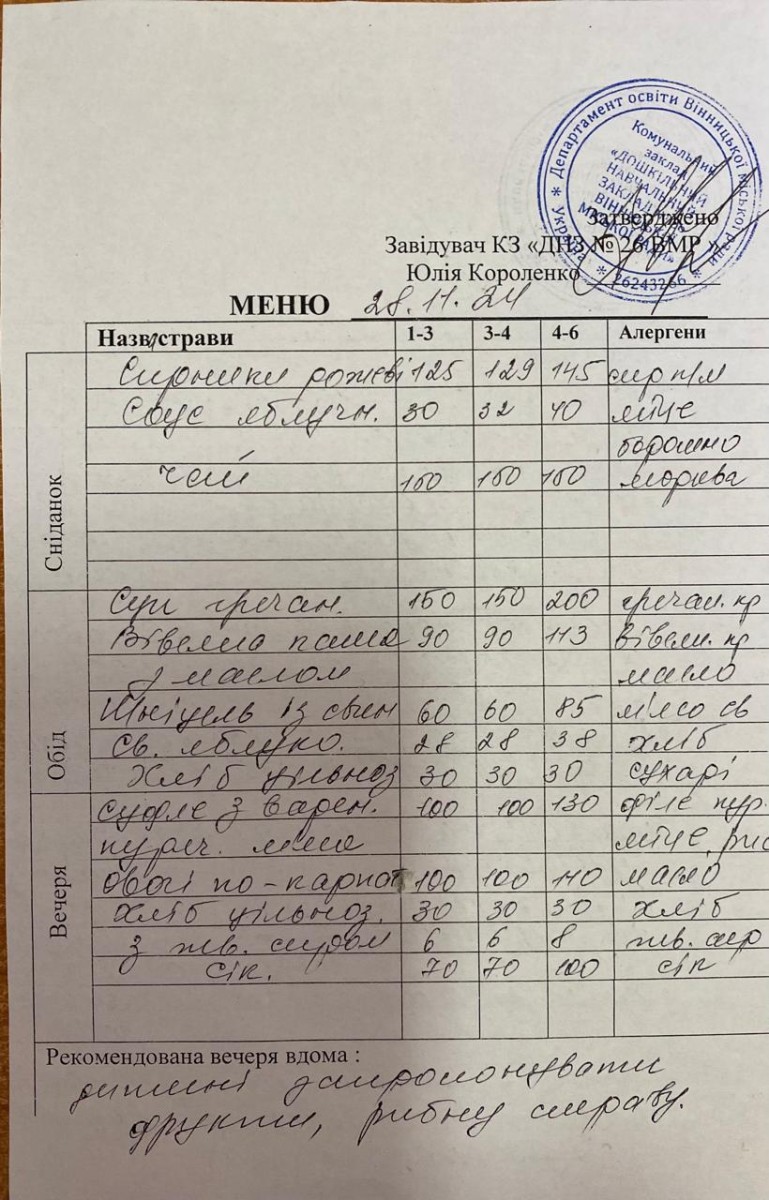 * Департамент освіти Вінницької міської ради * Україна * 26243266
Комунальний
заклад
«ДОШКІЛЬНИЙ
НАВЧАЛЬНИЙ
ЗАКЛАД
Затверджено
Завідувач КЗ «ДНЗ № 26 ВМР»
Юлія Короленко
МЕНЮ 28.11.24
Назви страви 1-3 3-4 4-6 Алергени
Сніданок
Сирники рожеві 125 129 145 сир к/м
Соус яблучн. 30 32 40 яйце
борошно
Чай 150 150 150 морква
Обід
Суп гречан. 150 150 200 гречан. кр
Вівсяна каша 90 90 113 Вівсян. кр
з маслом масло
Шніцель із свин 60 60 85 м'ясо св
Св. яблуко. 28 28 38 хліб
Хліб цільноз 30 30 30 сухарі
Вечеря
суфле з варен. 100 100 130 філе кур.
куряч. м'яса яйце, рис
овочі по-карпат 100 100 110 масло
Хліб цільноз. 30 30 30 хліб
з тв. сиром 6 6 8 тв. сир
сік. 70 70 100 сік
Рекомендована вечеря вдома :
дитині запропонувати
фрукти, рибну страву.